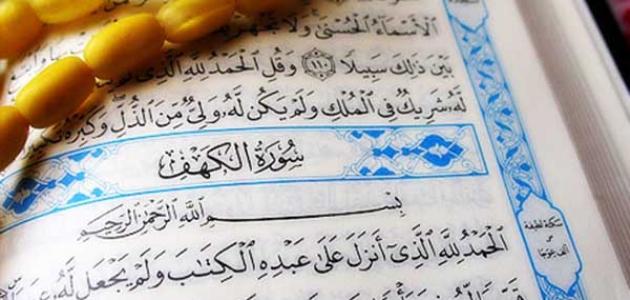 ٱلْأَسْمَآءُ ٱلْحُسْنَىٰ وَلَا تَجْهَرْ
بَيْنَ ذَٰلِكَ سَبِيلًا ١١٠ وَقُلِ ٱلْحَمْدُ لِلَّهِ ٱلَّذِى
لَّهُۥ شَرِيكٌ فِى ٱلْمُلْكِ وَلَمْ يَكُن لَّهُۥ وَلِىٌّ مِّنَ ٱلذُّلِّ وَكَبِّرْهُ تَكْبِيرًا
سُورَةُ ٱلْكَهْفِ
بِسْمِ ٱللَّهِ ٱلرَّحْمَٰنِ ٱلرَّحِيمِ
ٱلْحَمْدُ لِلَّهِ ٱلَّذِىٓ أَنزَلَ عَلَىٰ عَبْدِهِ ٱلْكِتَٰبَ وَلَمْ يَجْعَل لَّهُۥ
سكتة لطيفة